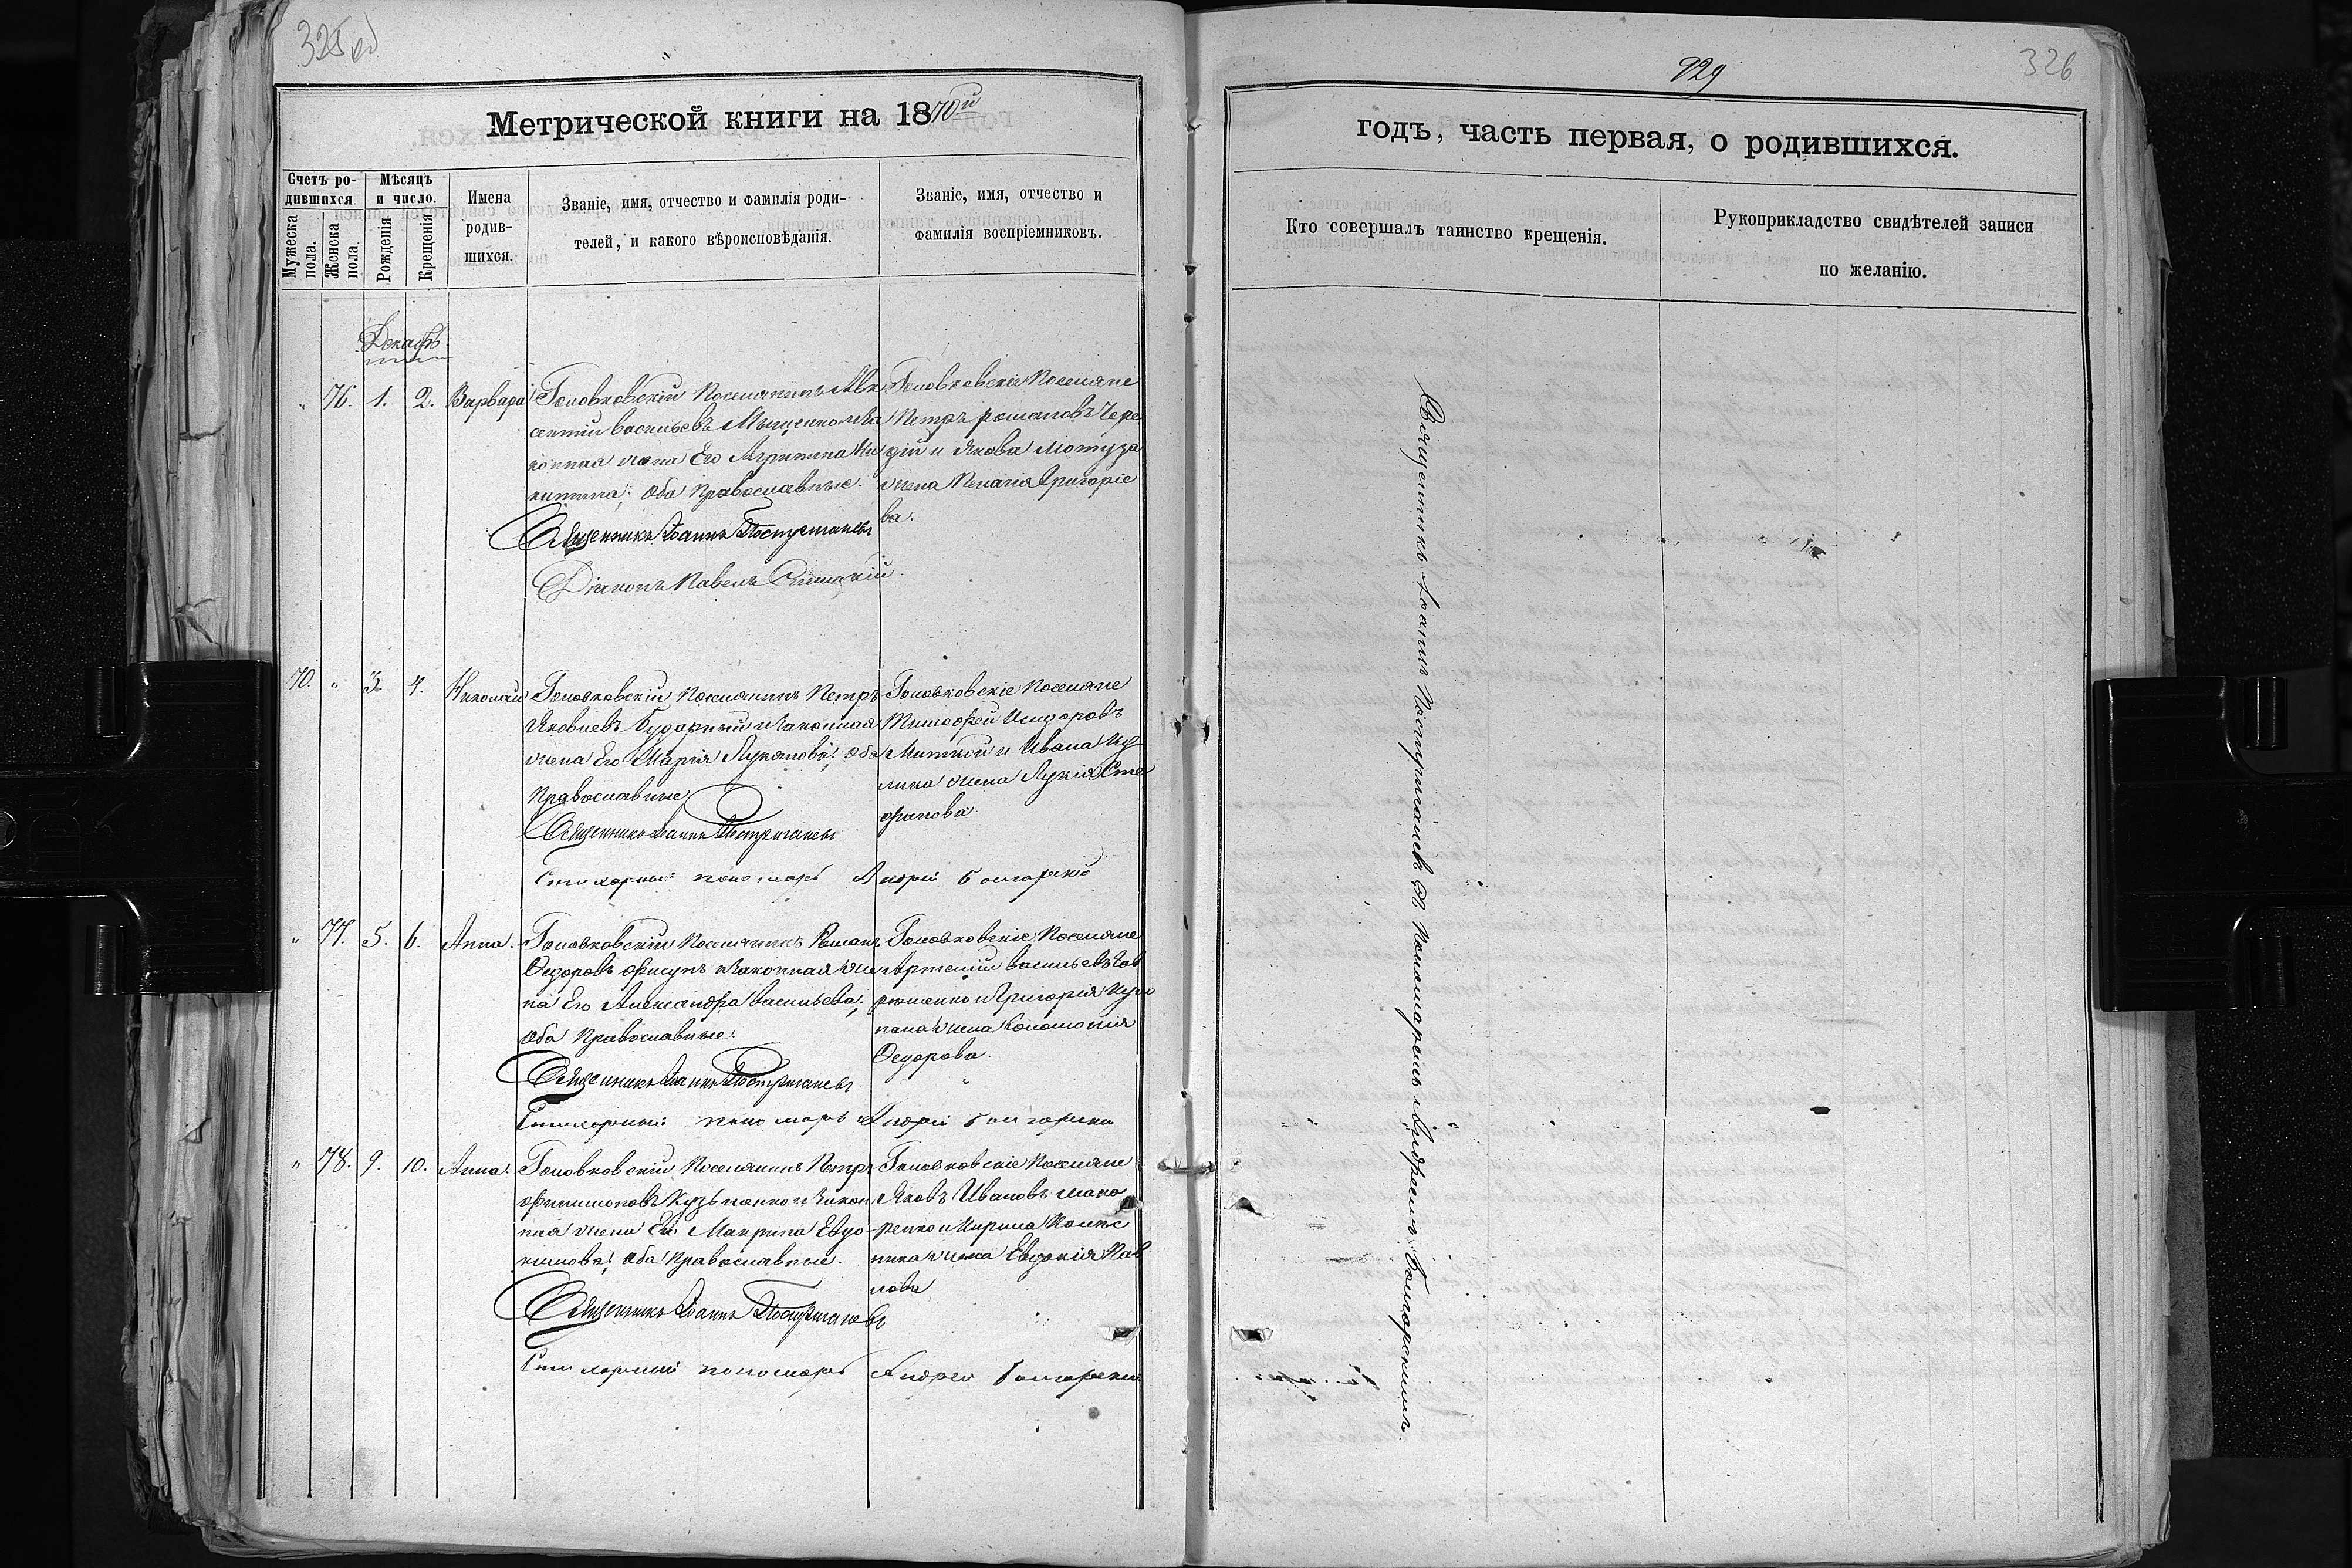 325 об
Метрической книги на 1870й
Счетъ родившихся.
Мѣсяцъ и число.
Мужеска пола.
Женска пола.
Рожденія
Крещенія.
Имена родившихся.
Званіе, имя, отчество и фамилія роди-
телей, и какого вѣроисповѣданія.
Званіе, имя, отчество и
фамилія воспріемниковъ.
Декабрь
" 76. 1. 2. Варвара
Головковскій Поселянинъ Авк
сентій Васильевъ и За
конная жена Его Агрипина Ни
китина; оба Православные.
Священникъ Іоаннъ Постриганевъ
Діаконъ Павелъ
Головковскіе Поселяне
Петръ Романовъ Чере
дкій и Якова Мотуза
жена Пелагія Григоріе
ва.
70. " 3. 4. Николай
Головковскій Поселянинъ Петръ
Яковлевъ и Законная
жена Его Марія Лукянова; оба
Православные
Священникъ Іоаннъ Постриганевъ
Стихарный пономарь Андрей Болгарскій
Головковскіе Поселяне
Тимофей Исидоровъ
и Ивана
жена Лукія Сте
фанова.
" 77. 5. 6. Анна.
Головковскій Поселянинъ Романъ
Федоровъ Фисунъ и Законная же
на Его Александра Васильева;
оба Православные.
Священникъ Іоаннъ Постриганевъ
Стихарный пономарь Андрей Болгарскій
Головковскіе Поселяне
Артемій Васильевъ Гав
рюшенко и Григорія
жена Соломонія
Федорова.
" 78. 9. 10. Анна.
Головковскій Поселянинъ Петръ
Филимоновъ Кузьменко и Закон
ная жена Его Макрина Евдо
кимова; оба Православные.
Священникъ Іоаннъ Постриганевъ
Стихарный пономарь Андрей Болгарскій
Головковскіе Поселяне
Яковъ Ивановъ Мака
ренко и Кирила Колѣс
ника жена Евдокія Пав
лова
929
326
годъ, часть первая, о родившихся.
Кто совершалъ таинство крещенія.
Рукоприкладство свидѣтелей записи
по желанію.
Священникъ Іоаннъ Постриганевъ съ Пономаремъ Андреемъ Болгарскимъ.